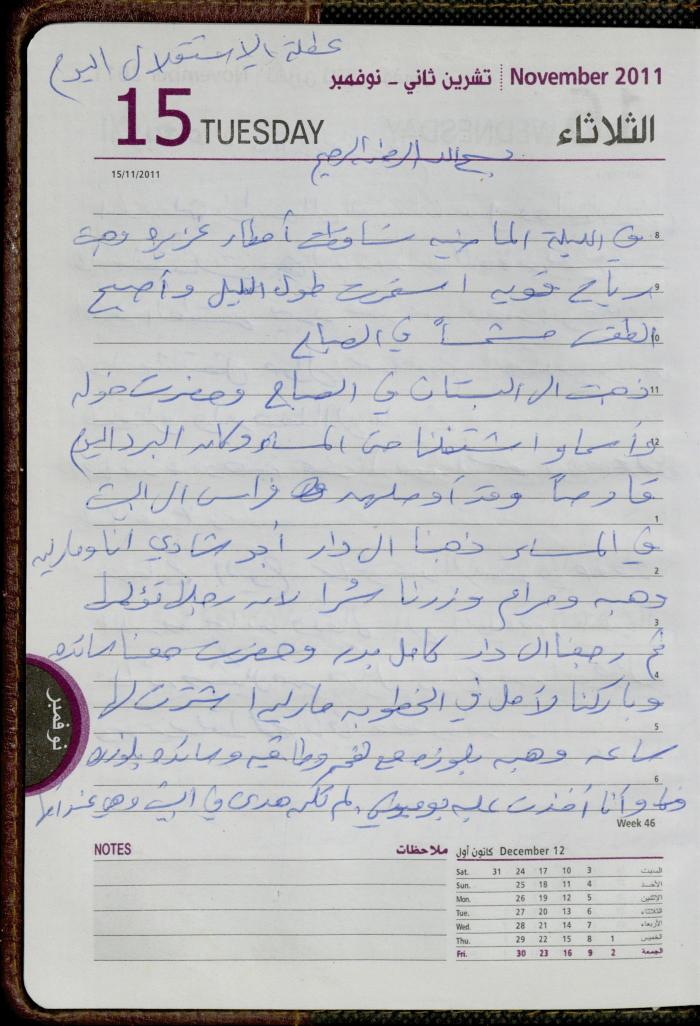 عطلة بالاستقلال اليوم
November 2011 تشرين ثاني - نوفمبر
15 TUESDAY الثلاثاء
بسم الله الرحمن الرحيم
15/11/2011
8 في الليلة الماضيه تساقطت أمطار غزيره وهبت
9 رياح قويه استمرت طول الليل وأصبح
10 الطقس مشمساً في الصباح
11 ذهبت الى البستان في الصباح وحضرت خوله
12 وأسما واشتغلنا حتى المساء وكان البرد اليوم
قارصاً وقد أوصلهم فراس الى البيت
1
في المساء ذهبنا الى دار أبو شادي أنا وماريه
2
وهبه ومرام وزرنا لأن رجلها
3
ثم رجعنا الى دار كامل بدر وحضرت معنا سائده
4
وباركنا لأمل في الخطوبه ماريه اشترت لها
5
ساعه وهبه بلوزه مع وطاقيه وسائده بلوزه
6
وأنا أخذت علبه لم تكن هدى في البيت وهي عندها
Week 46
نوفمبر
NOTES ملاحظات
December 12 كانون أول
Sat. 31 24 17 10 3 السبت
Sun. 25 18 11 4 الأحد
Mon. 26 19 12 5 الإثنين
Tue. 27 20 13 6 الثلاثاء
Wed. 28 21 14 7 الأربعاء
Thu. 29 22 15 8 1 الخميس
Fri. 30 23 16 9 2 الجمعة